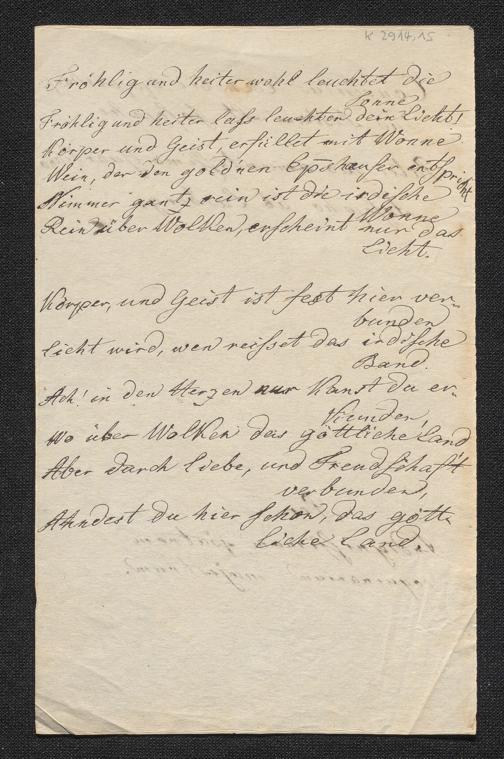 K 2914,15
Fröhlig und heiter wohl leuchtet die
Sonne
Fröhlig und heiter lass leuchten dein Licht!
Körper und Geist, erfüllet mit Wonne
Wein, der den gold'nen entspricht
Nimmer gantz rein ist die irdische
Wonne
Rein über Wolken, erscheint nur das
Licht.
Körper, und Geist ist fest hier ver-
bunden
Licht wird, wen reisset das irdische
Band.
Ach! in den Herzen nur Kanst du er-
Kunden,
Wo über Wolken das göttliche Land
Aber darch Liebe, und Freudschaft
verbunden,
Ahndest du hier schon, das gött-
liche Land